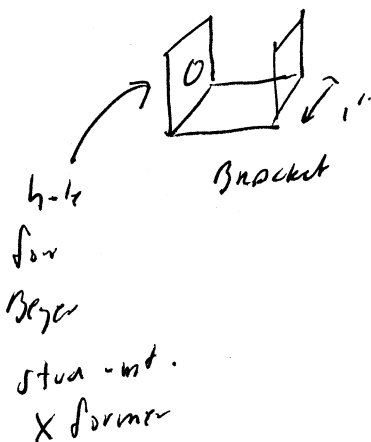 1"
Bracket
hole
for
Beyer
stud mt.
X former